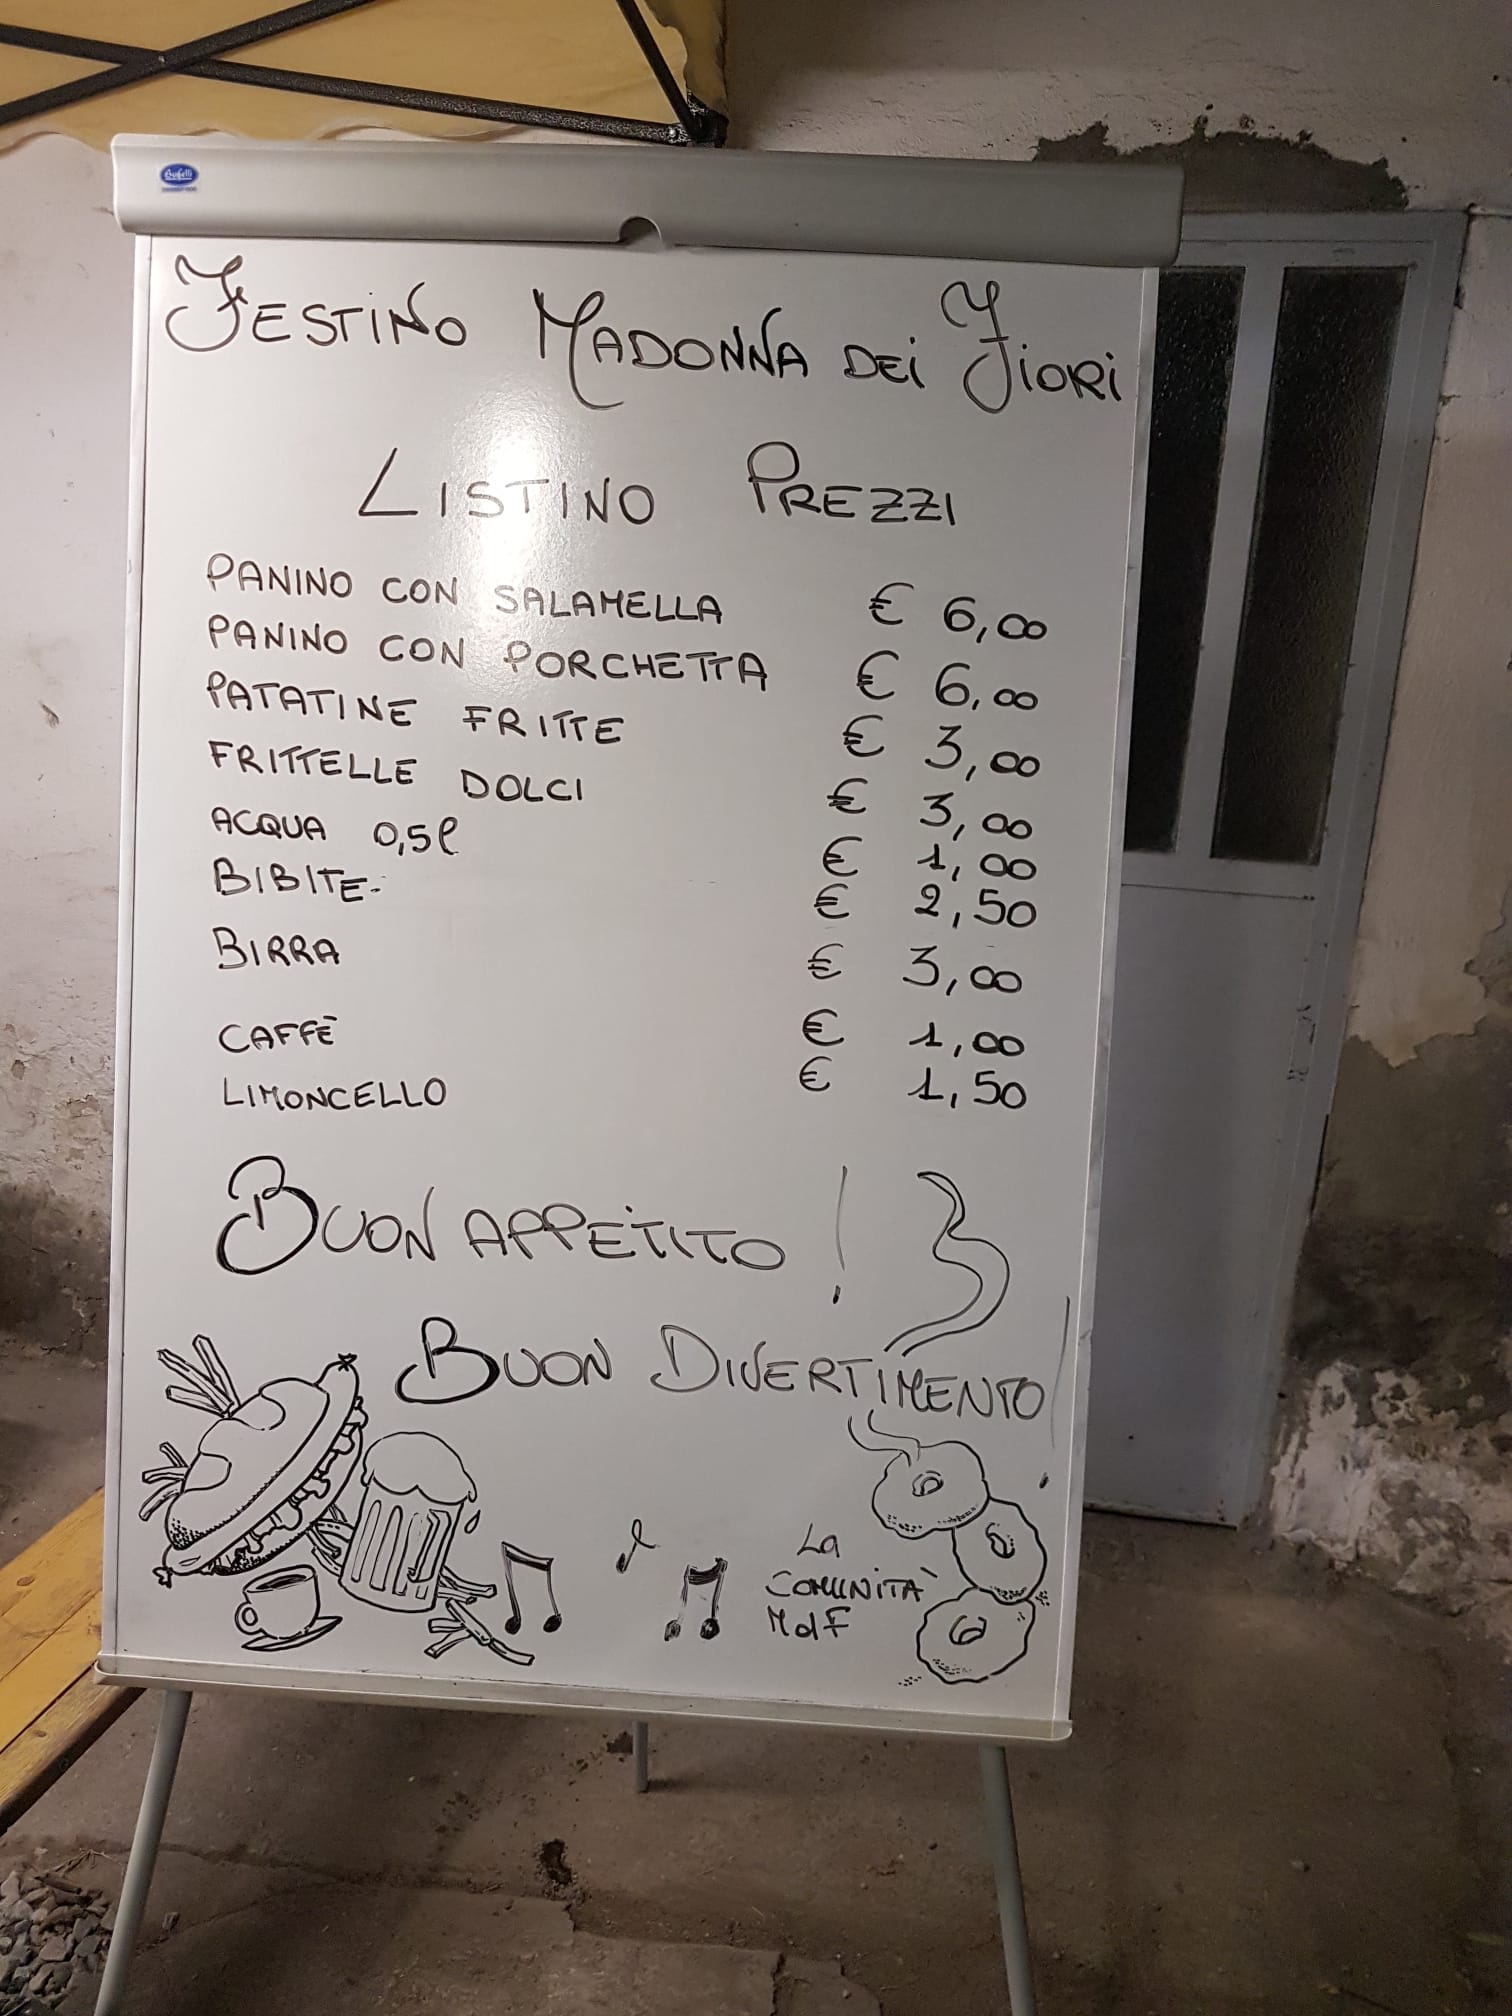 Bufetti
FESTINO MADONNA DEI FIORI
LISTINO PREZZI
PANINO CON SALAMELLA € 6,00
PANINO CON PORCHETTA € 6,00
PATATINE FRITTE € 3,00
FRITTELLE DOLCI € 3,00
ACQUA 0,5l € 1,00
BIBITE- € 2,50
BIRRA € 3,00
CAFFÈ € 1,00
LIMONCELLO € 1,50
BUON APPETITO !
BUON DIVERTIMENTO !
La
COMUNITA'
MdF